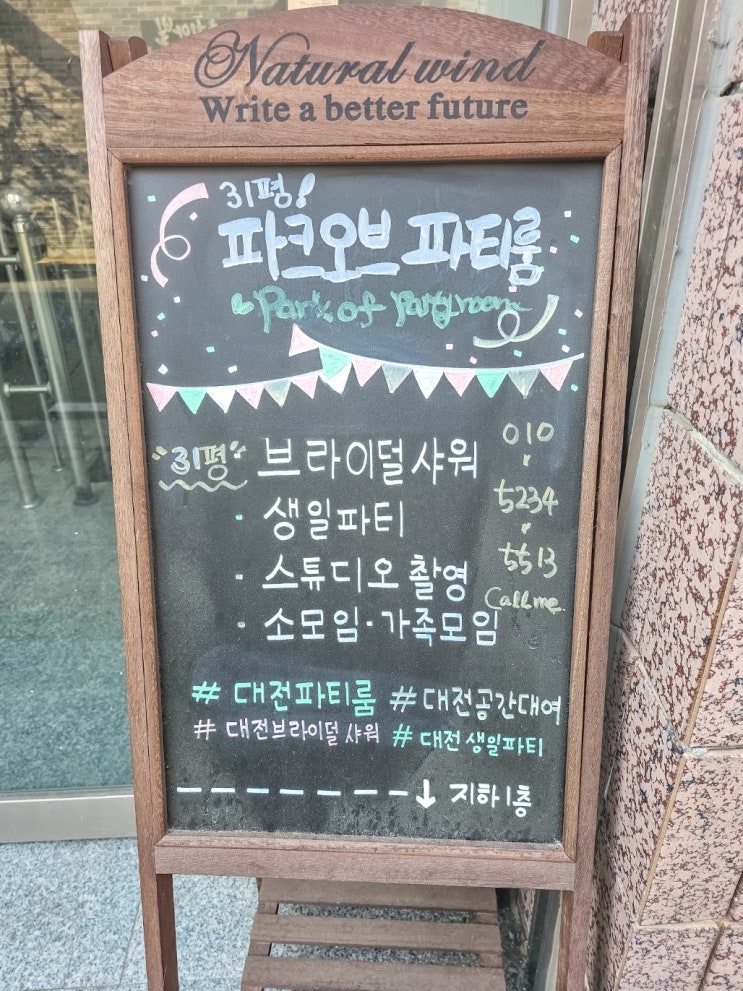 Natural wind
Write a better future
31평!
파크오브 파티룸
Park of Party room
"31평" 브라이덜샤워
- 생일파티
- 스튜디오 촬영
- 소모임·가족모임
010
5234
5513
Call me
# 대전파티룸 # 대전공간대여
# 대전브라이덜샤워 # 대전생일파티
↓ 지하1층